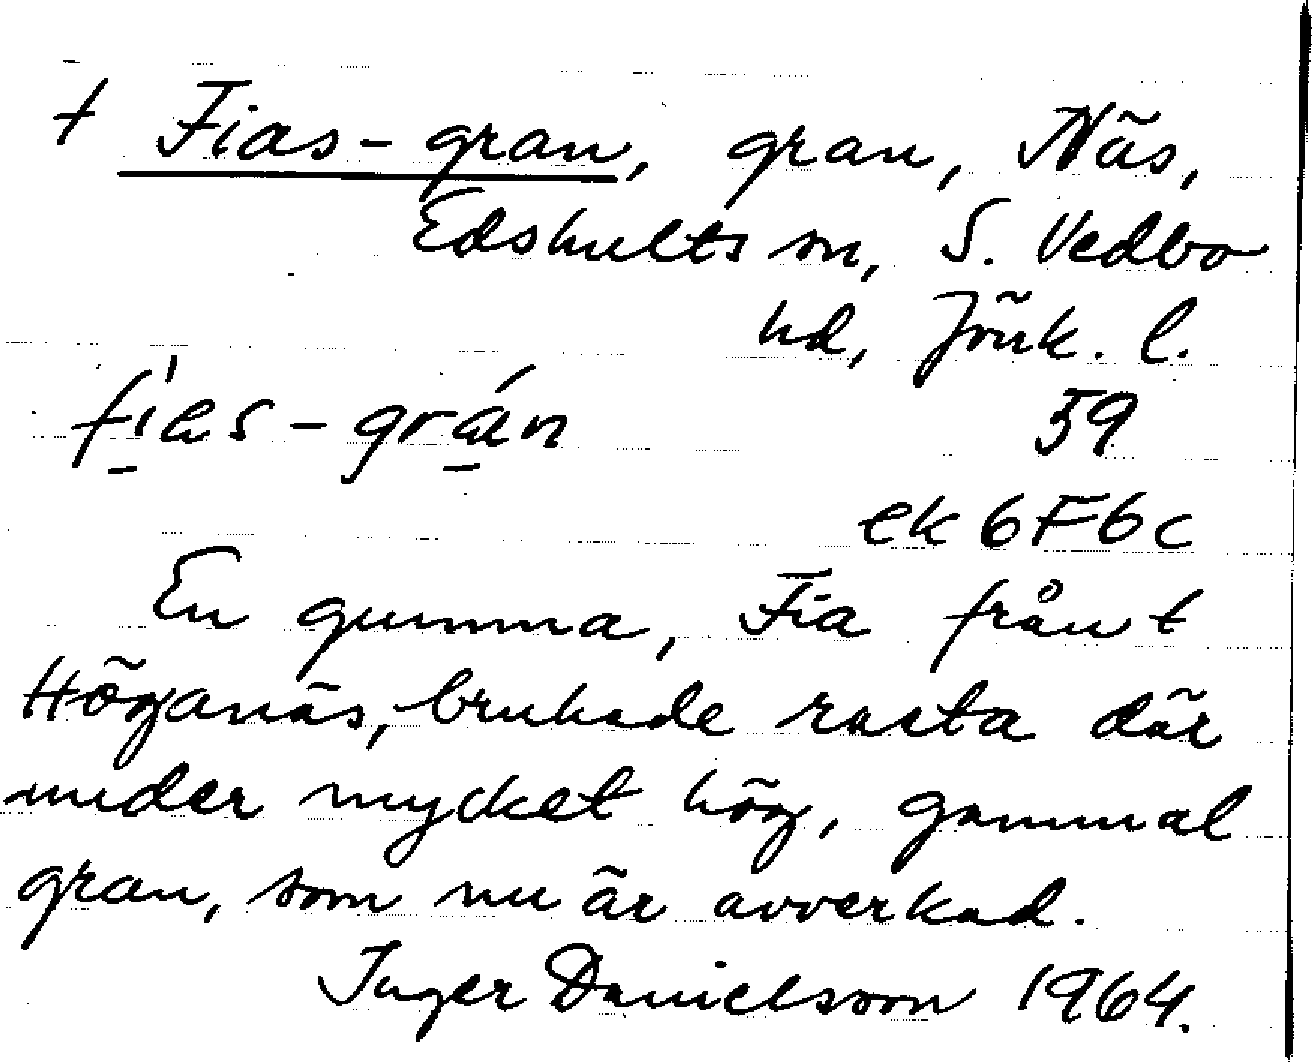 † Fias-gran, gran, Näs,
Edshults sn, S. Vedbo
hd, Jönk. l.
fi̱'as-grá̱n 59
ek 6F6c
En gumma, Fia från †
Höganäs, brukade rasta där
under mycket hög, gammal
gran, som nu är avverkad.
Inger Danielsson 1964.